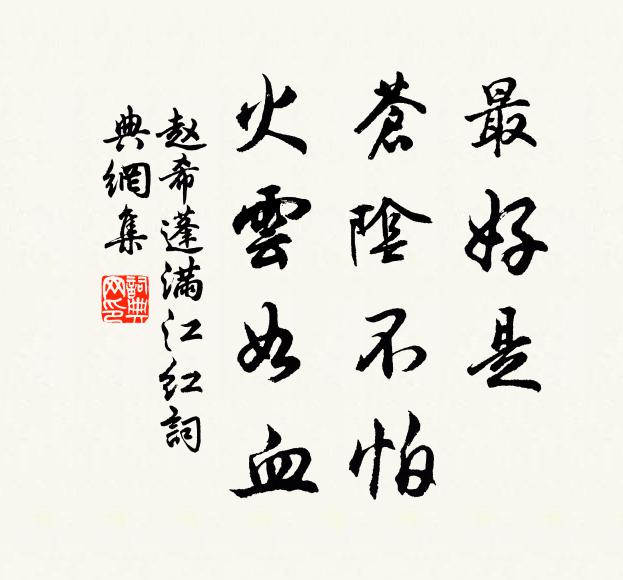 最好是
蒼陰不怕
火雲如血
赵希蓬满江红詞
典網集
詞典网印